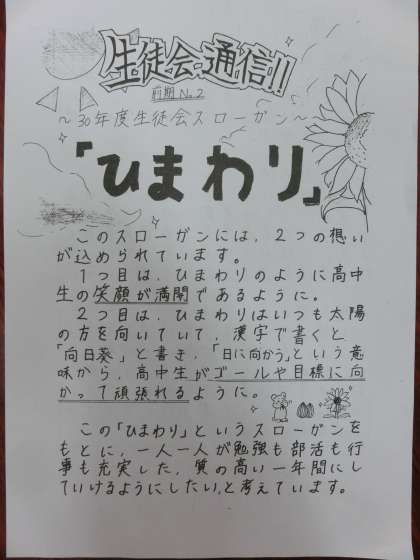 生徒会通信!!
前期 No.2
～30年度生徒会スローガン～
「ひまわり」
このスローガンには、2つの想い
が込められています。
1つ目は、ひまわりのように高中
生の笑顔が満開であるように。
2つ目は、ひまわりはいつも太陽
の方を向いていて、漢字で書くと
「向日葵」と書き、「日に向かう」という意
味から、高中生がゴールや目標に向
かって頑張れるように。
この「ひまわり」というスローガンを
もとに、一人一人が勉強も部活も行
事も充実した、質の高い一年間にし
ていけるようにしたい、と考えています。